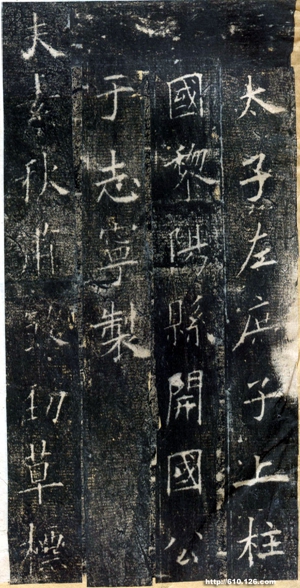 太子左庶子上柱
國黎陽縣開國公
于志寧製
夫素秋肅勁草標
http://610.126.com